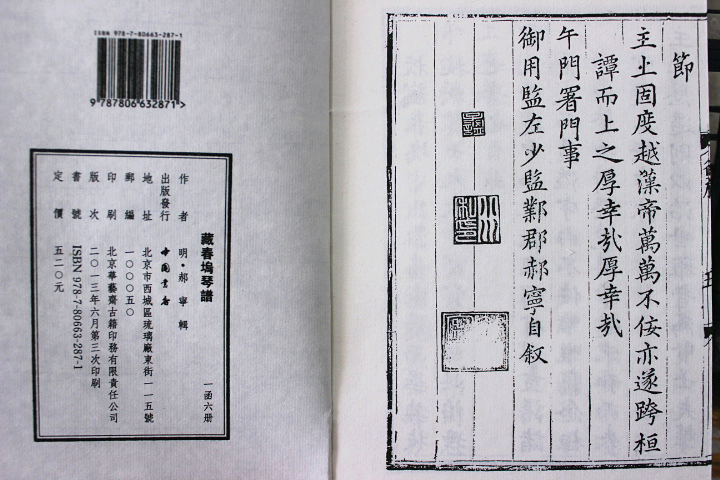 ISBN 978-7-80663-287-1
9 787806 632871 >
藏春塢琴譜
一函六册
作者 明·郝寧 輯
出版發行 中國書店
地址 北京市西城區琉璃廠東街一一五號
郵編 一〇〇〇五〇
印刷 北京華藝齋古籍印務有限責任公司
版次 二〇一三年六月第三次印刷
書號 ISBN 978-7-80663-287-1
定價 五二〇元
節
主上固度越藻帝萬萬不佞亦遂跨桓
譚而上之厚幸㢤厚幸㢤
午門署門事
御用監左少監鄴郡郝寧自敘